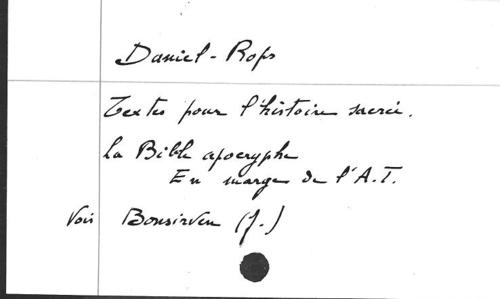 Daniel-Rops
Textes pour l'histoire sacrée.
La Bible apocryphe
En marge de l'A.T.
Voir Bonsirven (J.)